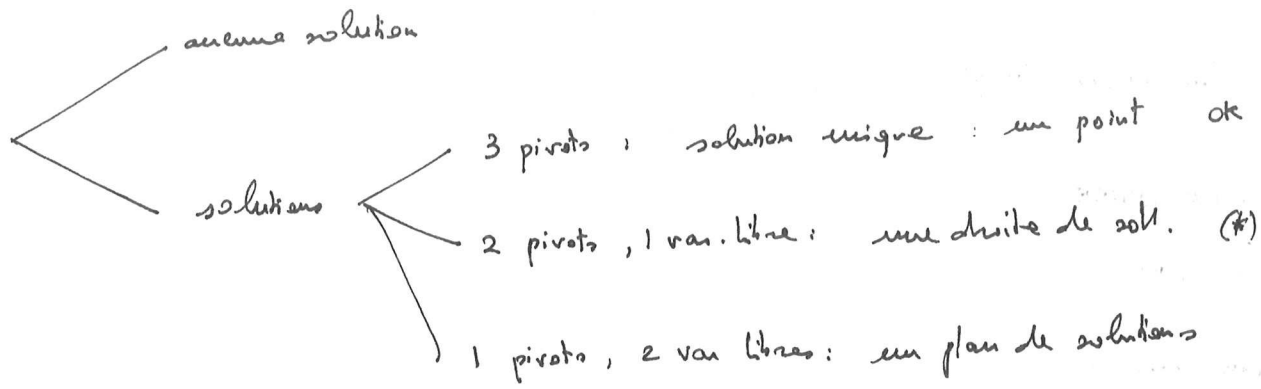 aucune solution
3 pivots : solution unique : un point ok
solutions
2 pivots, 1 var. libre : une droite de sol. (*)
1 pivots, 2 var libres : un plan de solutions